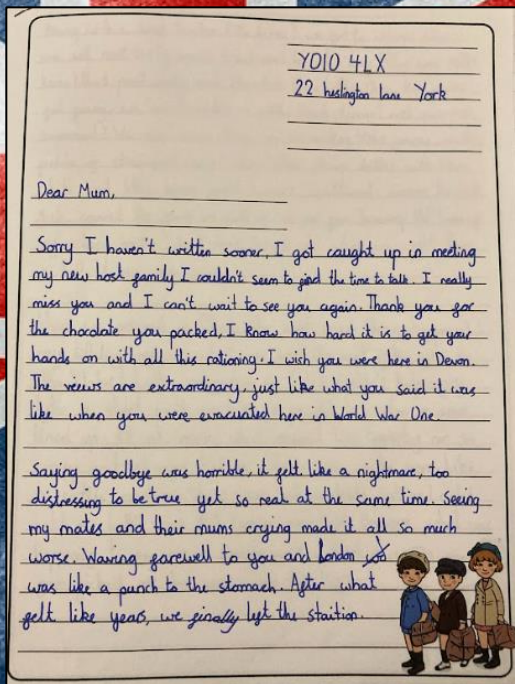 YO10 4LX
22 heslington lane York
Dear Mum,
Sorry I haven't written sooner, I got caught up in meeting
my new host family I couldn't seem to find the time to talk. I really
miss you and I can't wait to see you again. Thank you for
the chocolate you packed, I know how hard it is to get your
hands on with all this rationing. I wish you were here in Devon.
The views are extraordinary, just like what you said it was
like when you were evacuated here in World War One.
Saying goodbye was horrible, it felt like a nightmare, too
distressing to be true yet so real at the same time. Seeing
my mates and their mums crying made it all so much
worse. Waving farewell to you and London
was like a punch to the stomach. After what
felt like years, we finally left the staition.